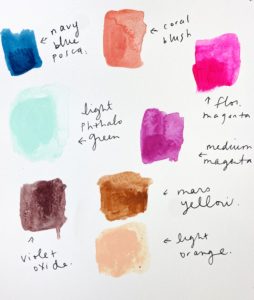 navy
blue
posca.
coral
blush
flor.
magenta
light
phthalo
green
medium
magenta
mars
yellow.
violet
oxide.
light
orange.